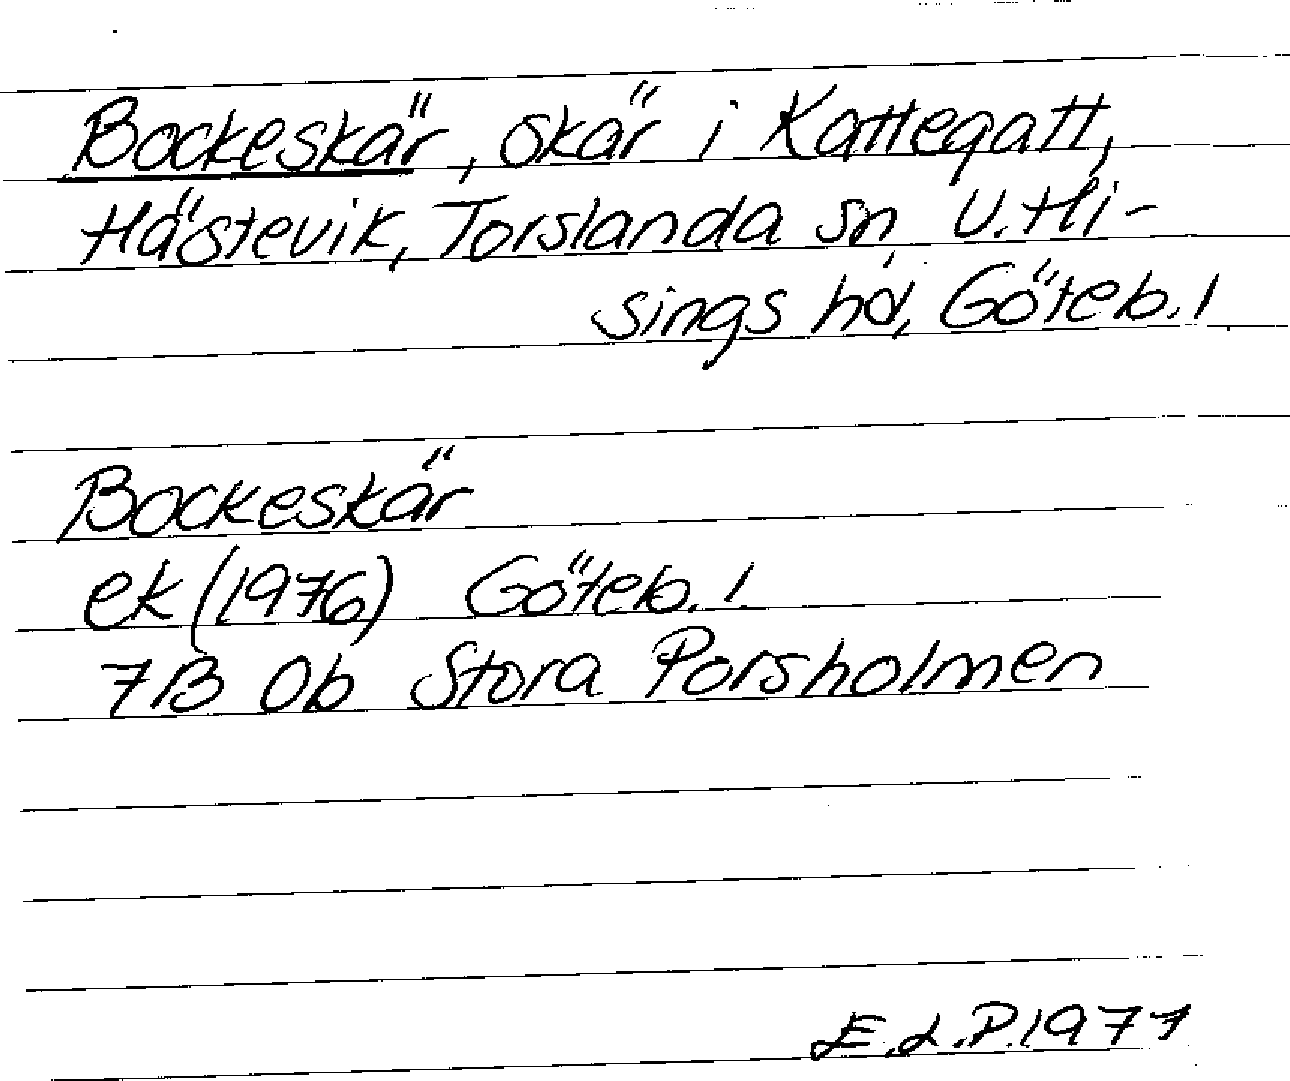 Bockeskär, skär i Kattegatt,
Hästevik, Torslanda sn, V. Hi-
sings hd, Göteb. l
Bockeskär
ek (1976) Göteb. l.
7B 0b Stora Porsholmen
E.L.P. 1977